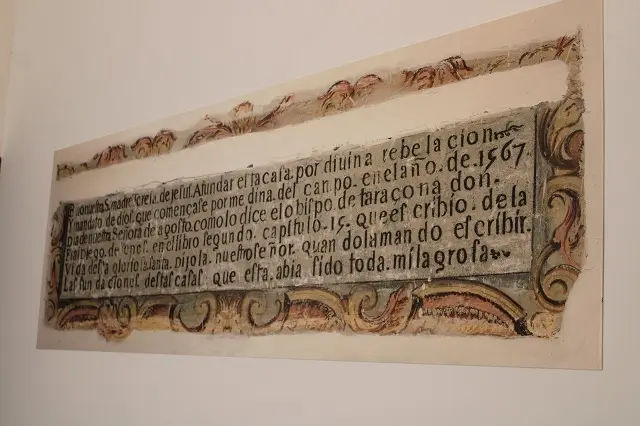 nuestra S. madre. Teresa. de Jesus. Afundar esta casa. por divina rebelacion
Y mandato de dios. que començase por medina. del canpo. en el año. de. 1567.
Dia de nuestra Señora de agosto. como lo dice el obispo de taraçona don.
diego. de yepes. en el libro segundo. capitulo. 15. que escribio. de la
Vida desta gloriosa santa. Dijola. nuestro señor. quando la mando escribir.
Las fundaciones destas casas. que esta. abia sido toda. milagrosa